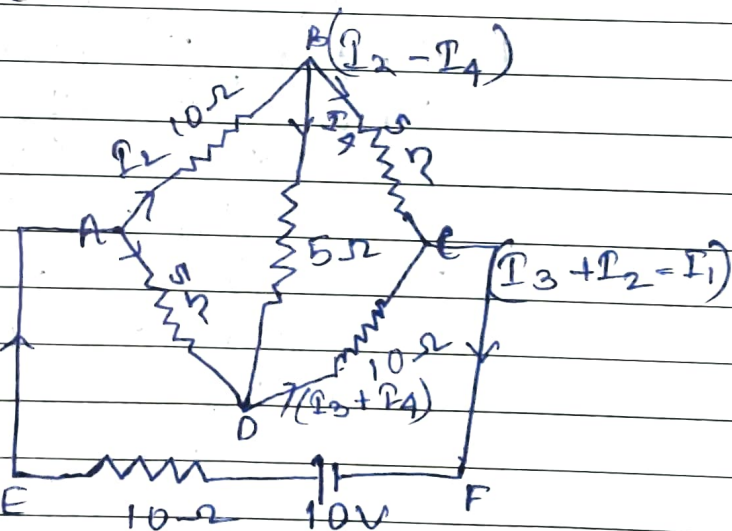 B(I₂ - I₄)
10Ω
I₂
I₄
5Ω
A
5Ω
5Ω
C
(I₃ + I₂ = I₁)
10Ω
(I₃ + I₄)
D
E
10Ω
10V
F